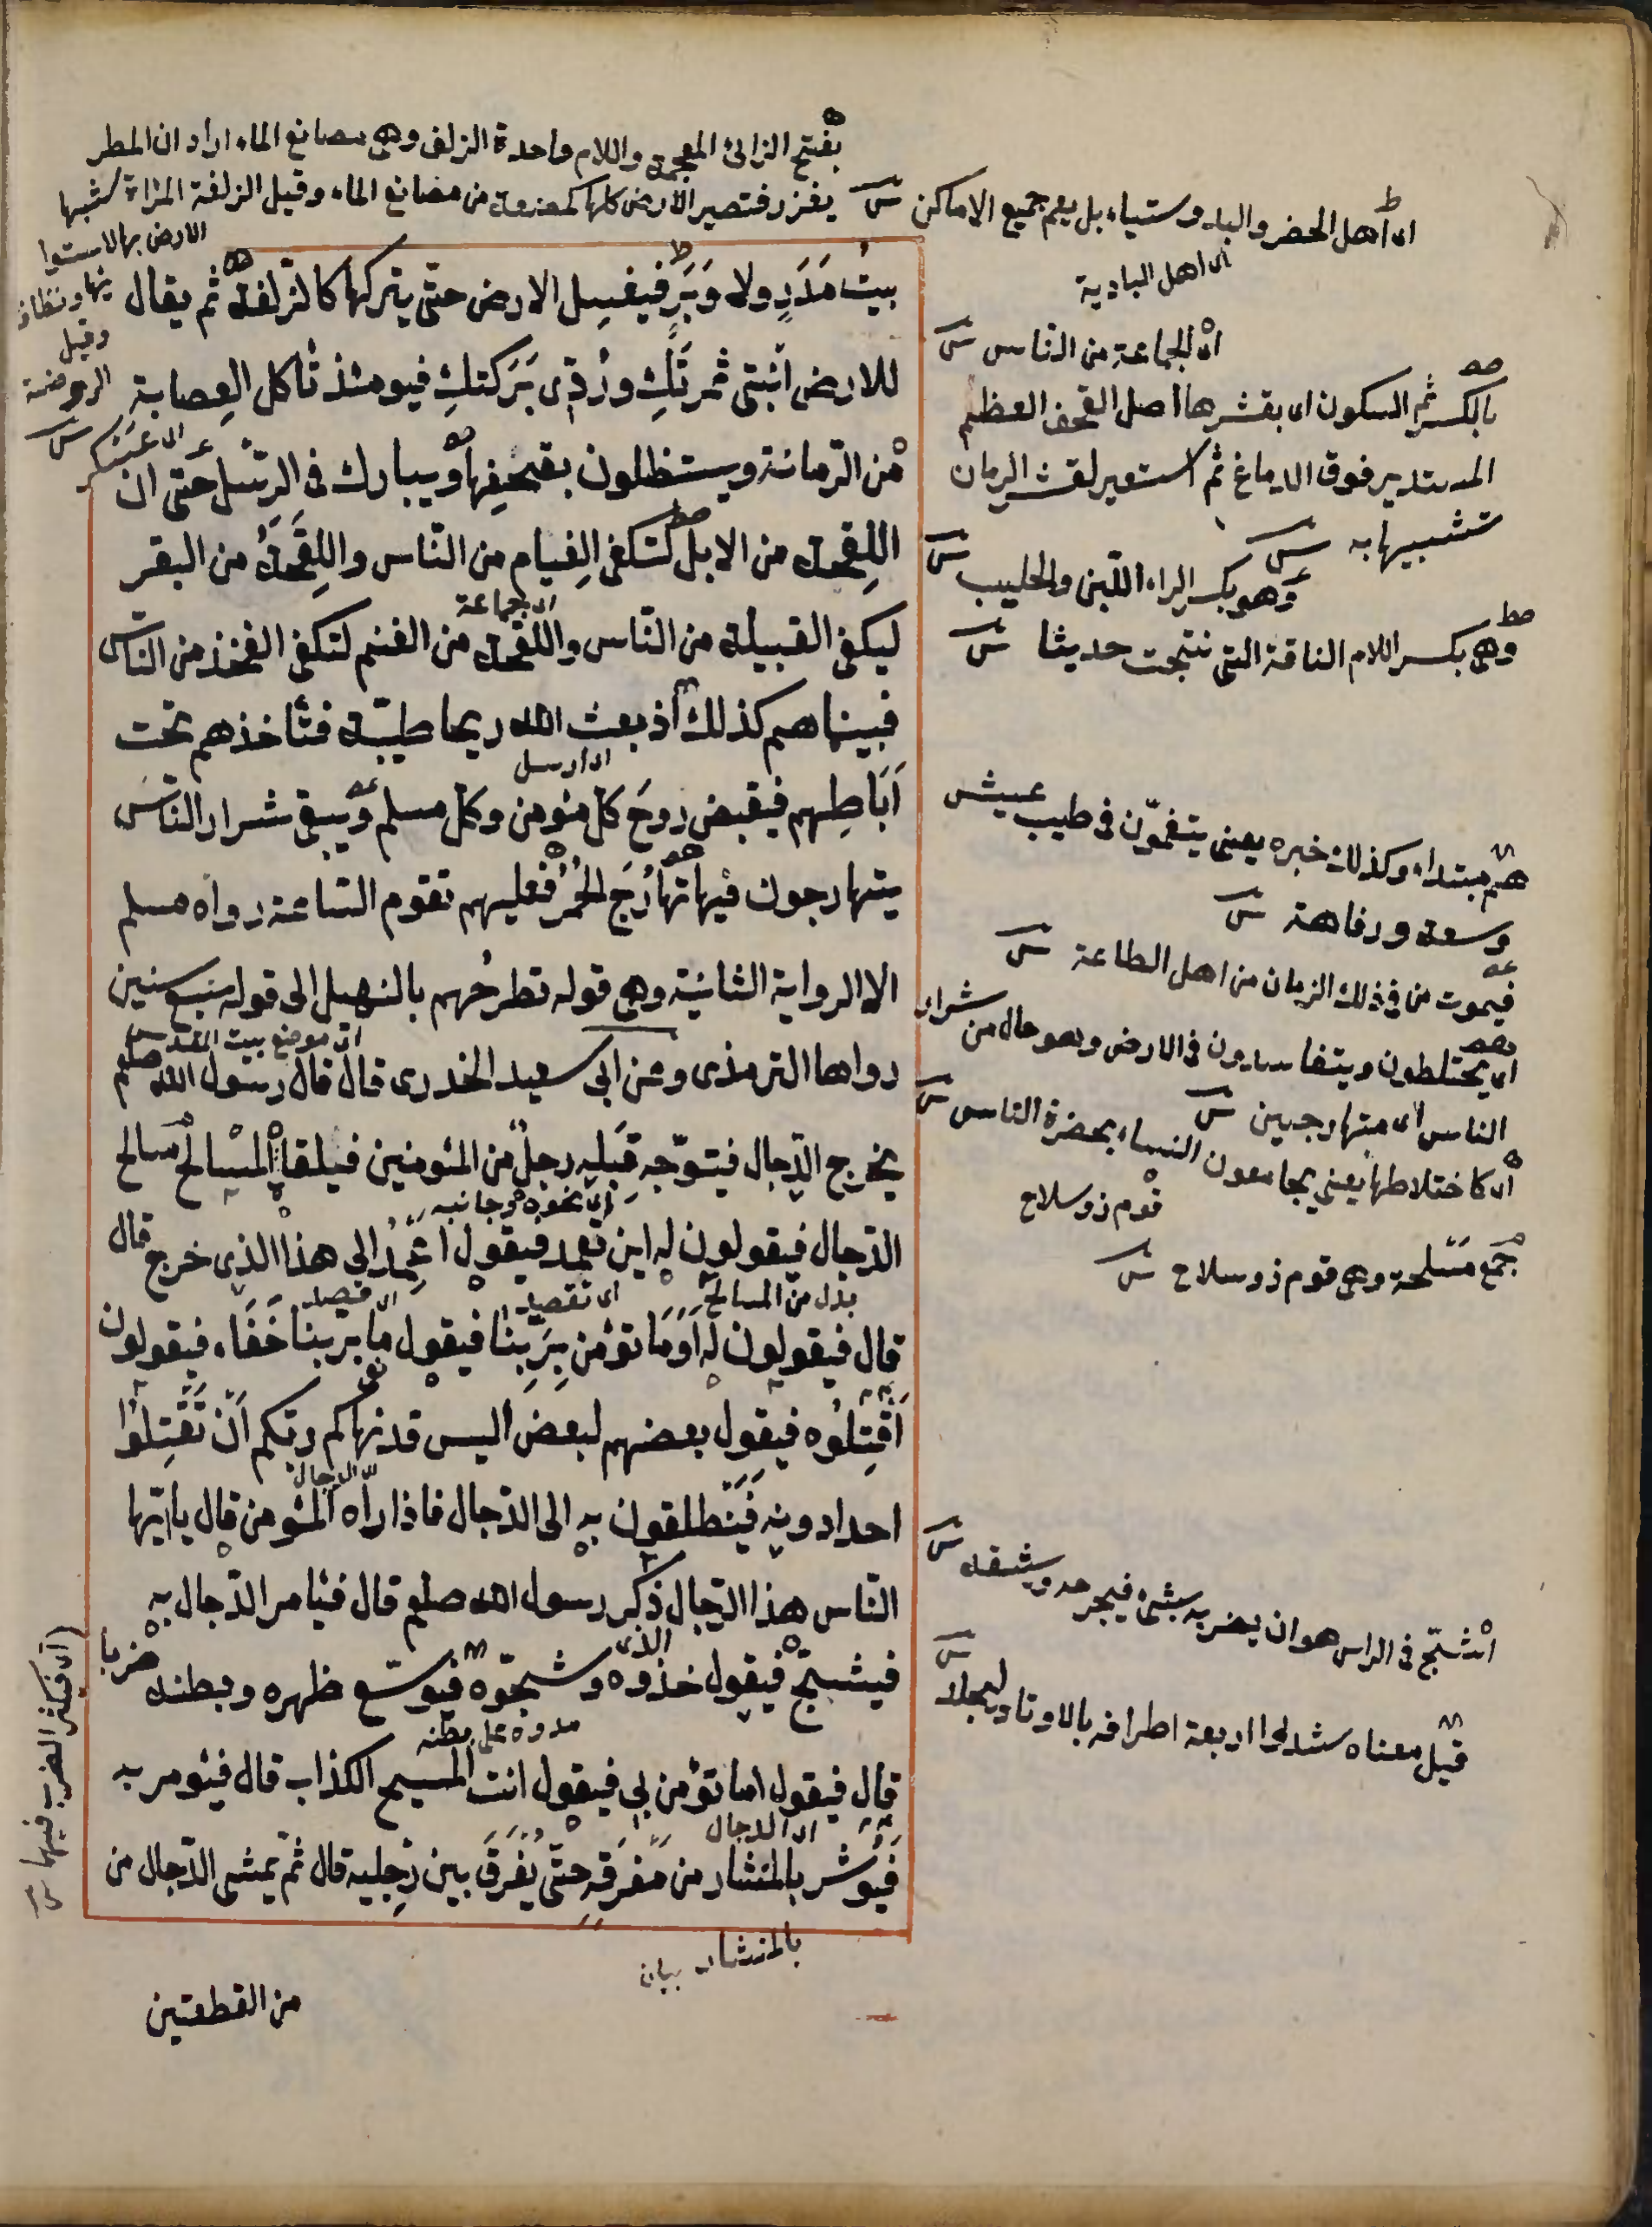 بفتح الزائ المعجمة واللام واحدة الزلف وهى مصانع الماء اراد ان المطر
يغزر فتصير الارض كلها كمصنعة من مصانع الماء وقيل الزلفة المراة شبهها
الارض بها لاستوا
ئها ونظاف
وقيل
الروضة
اى اهل الحضر والبدو سياء بل يعم جميع الاماكن
اى اهل البادية
بيت مَدَرٍ ولا وَبَرٍ فيغسل الارض حتى يتركها كالزلفة ثم يقال
للارض انبتى ثمرتكِ وردّى بَرَكتكِ فيومئذ تأكل العِصابة
من الرّمانة ويستظلون بقحفها ويبارك فى الرِسْل حتى ان
اللِقحة من الابل لتكفى الفِيام من النّاس واللِقحة من البقر
اى جماعة
ليكفى القبيلة من النّاس واللقحة من الغنم لتكفى الفخذ من النّاس
فبيناهم كذلك اذ بعث الله ريحا طيّبة فتأخذهم تحت
اى ارسل
آبَاطِهم فيقبض روحَ كل مئومن وكل مسلم ويبقى شرار النّاس
يتهارجون فيها تهارُجَ الحُمُر فعليهم تقوم السّاعة رواه مسلم
الا الرواية الثانية وهى قوله تطرحُهم بالنهبل الى قوله سبع سنين
اى موضع بيت المقدس
رواها الترمذى وعن ابى سعيد الخدرى قال قال رسول الله صلعم
يخرج الدّجال فيتوّجه قِبَله رجلٌ من المئومنين فيلقاه المسالح مسالح
اى نحوه وجانبه
الدّجال فيقولون له اين تعمد فيقول اَعْمِدُ الى هذا الذى خرج قال
بدل من المسالح
اى تقصد
اى قصد
قال فيقولون له اَوَمَا تؤمن بِرَبِّنا فيقول ما بربنا خَفَاء فيقولون
نفى
اُقتُلُوه فيقول بعضهم لبعض أليس قد نهاكم ربّكم اَنْ تَقتِلُوا
الدجال
احدا دونه فَيَنْطلقون به الى الدّجال فاذا رآه المئومن قال ياايّها
النّاس هذا الدّجال ذكر رسول الله صلعم قال فيامر الدّجال به
الذى
فيشبّح فيقول خذوه وشجّوه فيوسّع ظهره وبطنه ضربا
مدوه على بطنه
قال فيقول اما تؤمن بى فيقول انت المسيح الكذاب قال فيئومر به
اى الدجال
فَيُوشر بالمنشار من مَفرَقه حتّى يُفَرَقَ بين رِجليه قال ثم يمشى الدّجال من
بالمنشار بيان
من القطعتين
اى الجماعة من النّاس
بالكسر ثم السكون اى بقشرها اصل القحف العظم
المستدير فوق الدماغ ثم استعير لقشر الرمان
تشبيها به
وهو بكسر الراء اللبن والحليب
وهى بكسر اللام الناقة التى نتجت حديثا
هم مبتداء وكذلك خبره يعنى يتنعمّون فى طيب عيش
وسعة ورفاهة
فيموت من فى ذلك الزمان من اهل الطاعة
اى يختلطون ويتفاسدون فى الارض وهو حال من شرار
الناس اى متهارجين
اى كاختلاطها يعنى يجامعون النساء بحضرة الناس
قوم ذو سلاح
جمع مَسْلحة وهى قوم ذو سلاح
الشبّح فى الراس هوان يضربه بشئ فيجرحه ويشقه
قيل معناه شدوا اربعة اطرافه بالاوتاد ليجلد
اى فيكثر الضرب فيها